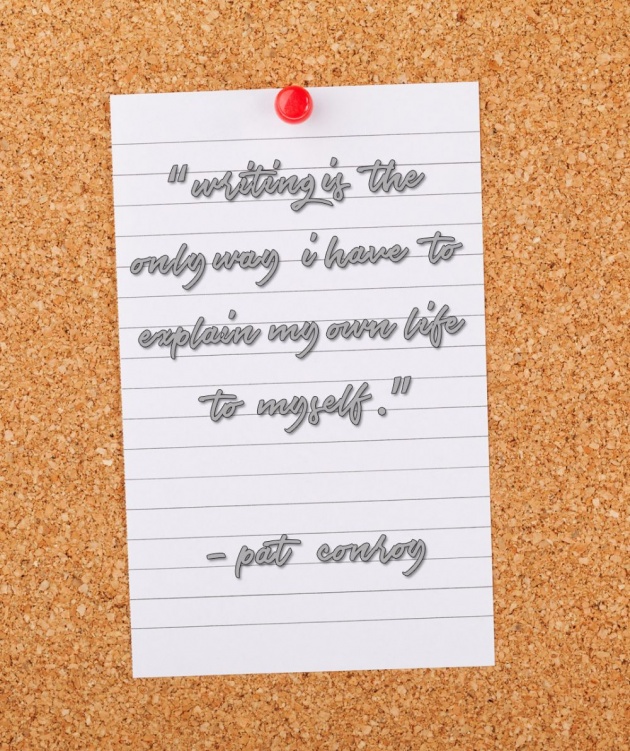 "writing is the
only way i have to
explain my own life
to myself."
- pat conroy